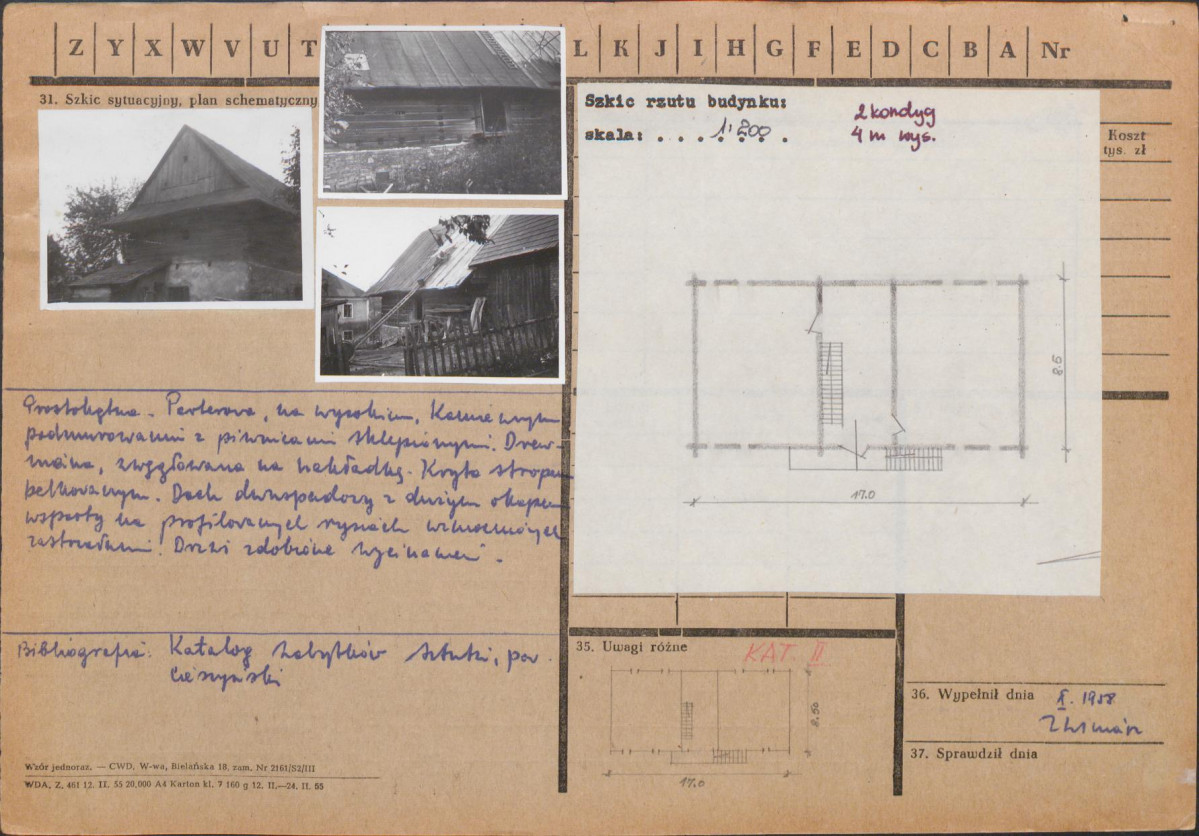 Z Y X W V U T L K J I H G F E D C B A Nr
31. Szkic sytuacyjny, plan schematyczny
Szkic rzutu budynku:
skala: . . . 1:200 .
2 kondyg
4 m wys.
Koszt
tys. zł
8.5
17.0
Prostokątna. Parterowa, na wysokim, kamiennym
podmurowaniu z piwnicami sklepionymi. Drew-
niana, zwęgłowana na nakładkę. Kryta stropem
belkowanym. Dach dwuspadowy z dużym okapem
wsparty na profilowanych rysiach wzmocnionych
zastrzałami. Drzwi zdobione wycinaniem.
Bibliografia: Katalog Zabytków Sztuki, pow.
Cieszyński
35. Uwagi różne
KAT. II
8.50
17.0
36. Wypełnił dnia X. 1958
37. Sprawdził dnia
Wzór jednoraz. — CWD, W-wa, Bielańska 18, zam. Nr 2161/S2/III
WDA, Z. 461 12. II. 55 20.000 A4 Karton kl. 7 160 g 12. II.—24. II. 55